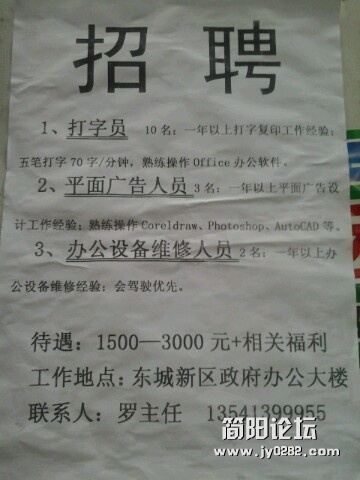 招 聘
1、打字员 10名：一年以上打字复印工作经验；
五笔打字 70 字/分钟，熟练操作Office 办公软件。
2、平面广告人员 3名：一年以上平面广告设
计工作经验；熟练操作 Coreldraw、Photoshop、AutoCAD 等。
3、办公设备维修人员 2名：一年以上办
公设备维修经验；会驾驶优先。
待遇：1500—3000 元+相关福利
工作地点：东城新区政府办公大楼
联系人：罗主任 13541399955
简阳论坛
www.jy0282.com